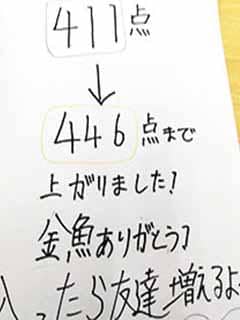 411点
↓
446点まで
上がりました!
金魚ありがとう!
入ったら友達増えるよ